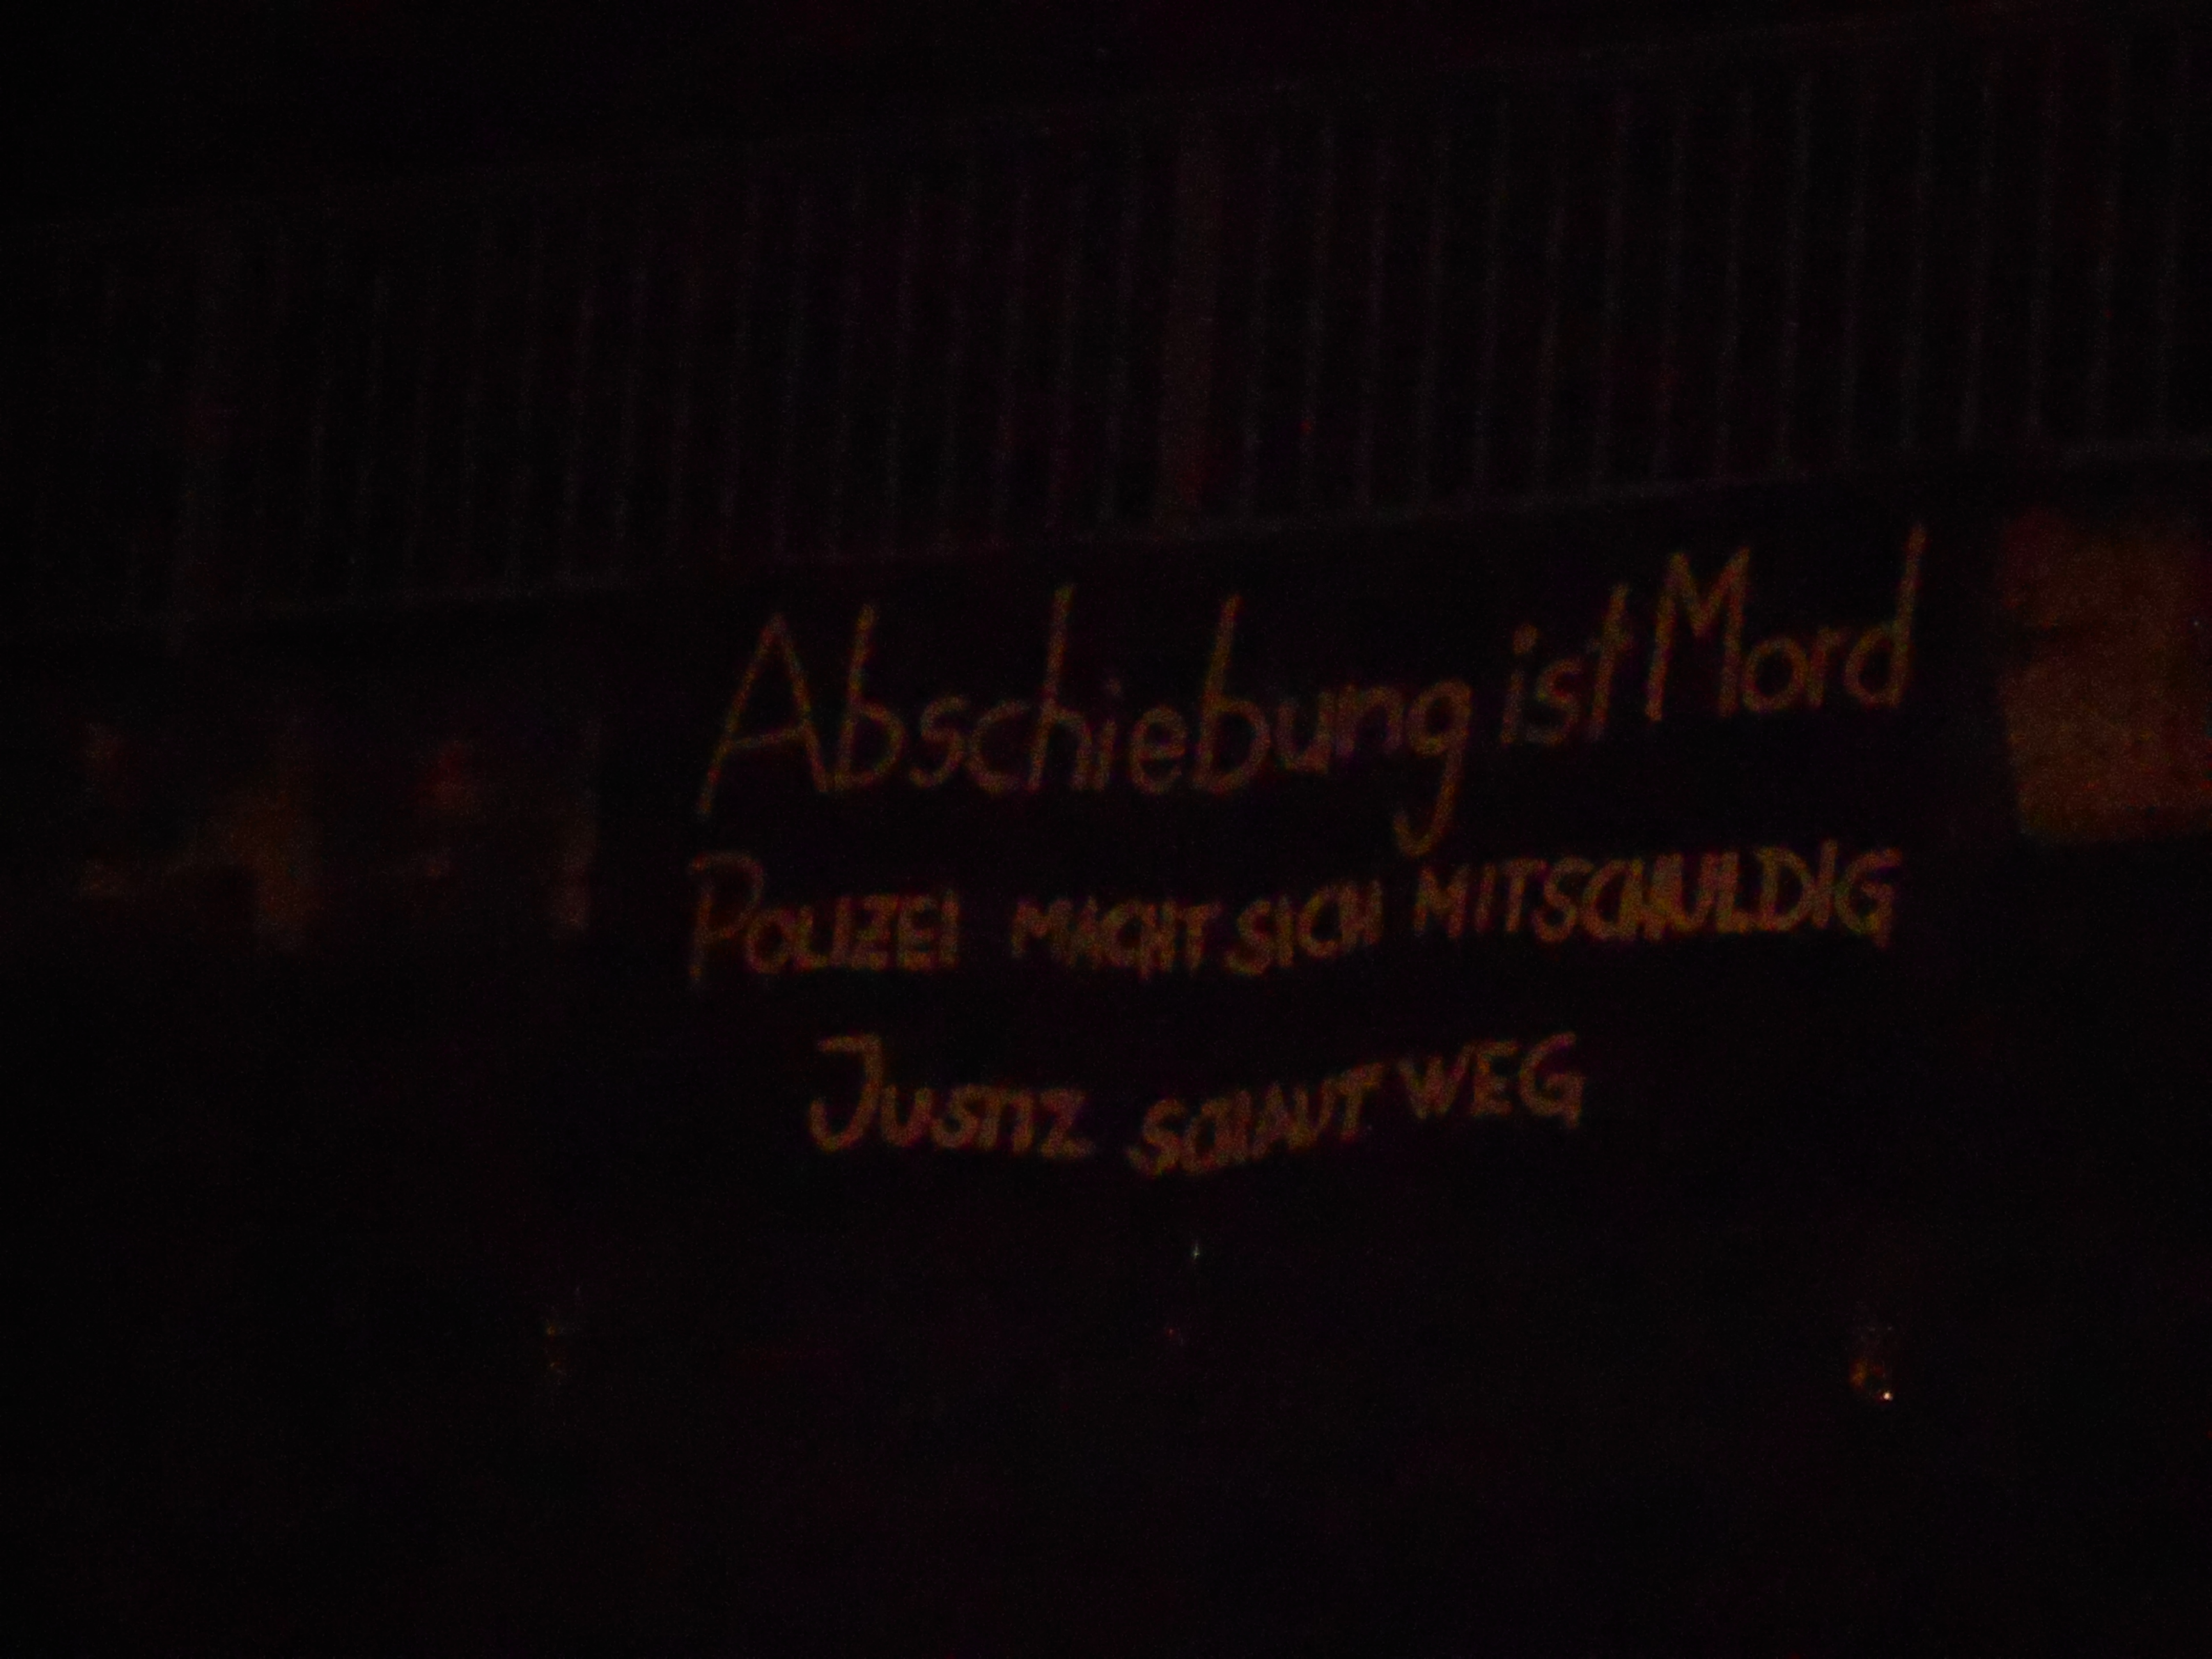 Abschiebung ist Mord
POLIZEI MACHT SICH MITSCHULDIG
JUSTIZ SCHAUT WEG